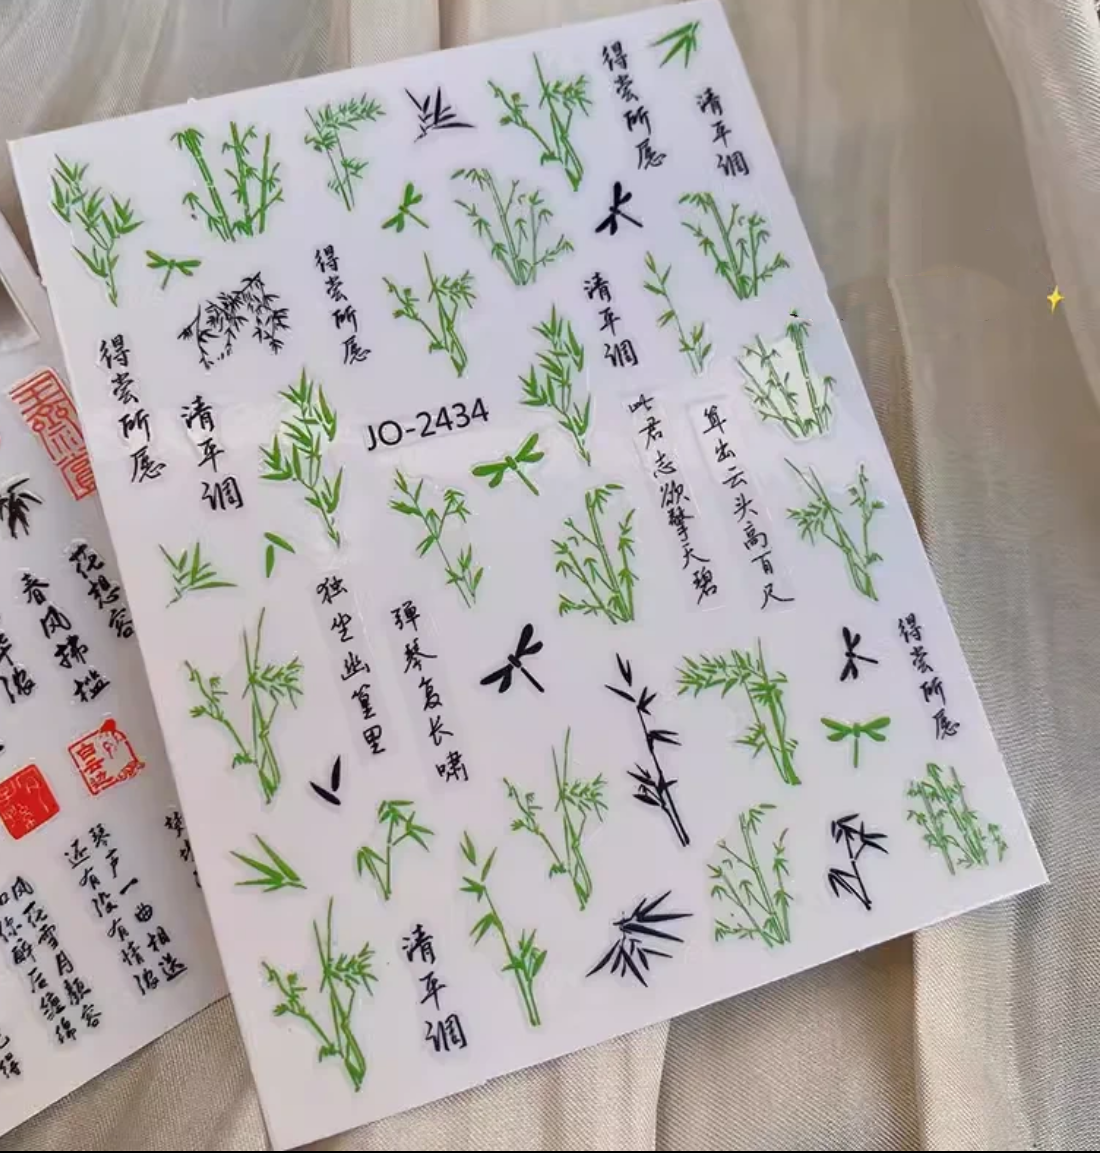 得尝所愿
清平调
得尝所愿
清平调
得尝所愿
清平调
JO-2434
耸出云头高百尺
此君志欲擎天碧
独坐幽篁里
弹琴复长啸
得尝所愿
清平调
花想容
春风拂槛
华浓
白云边
琴声一曲相送
还有没有情浓
风花雪月颜容
和你醉后缠绵